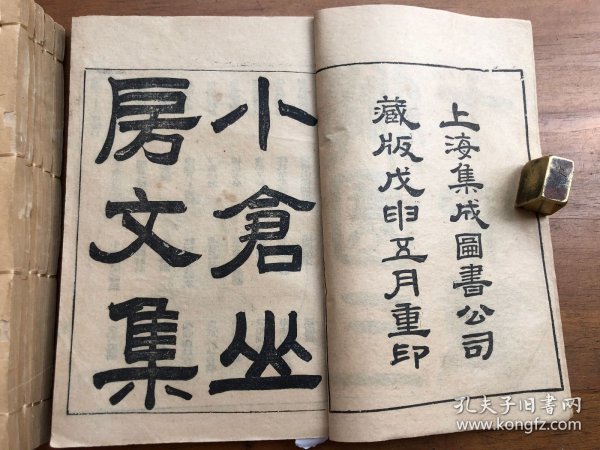 上海集成圖書公司
藏版戊申五月重印
小倉山
房文集
孔夫子旧書网
www.kongfz.com